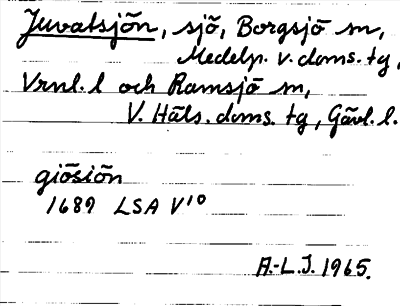 Juvatsjön, sjö, Borgsjö sn,
Medelp. v. doms. tg,
Vrnl. l och Ramsjö sn,
V. Häls. doms. tg, Gävl. l.
giösiön
1689 LSA V¹⁰
A.-L.J. 1965.